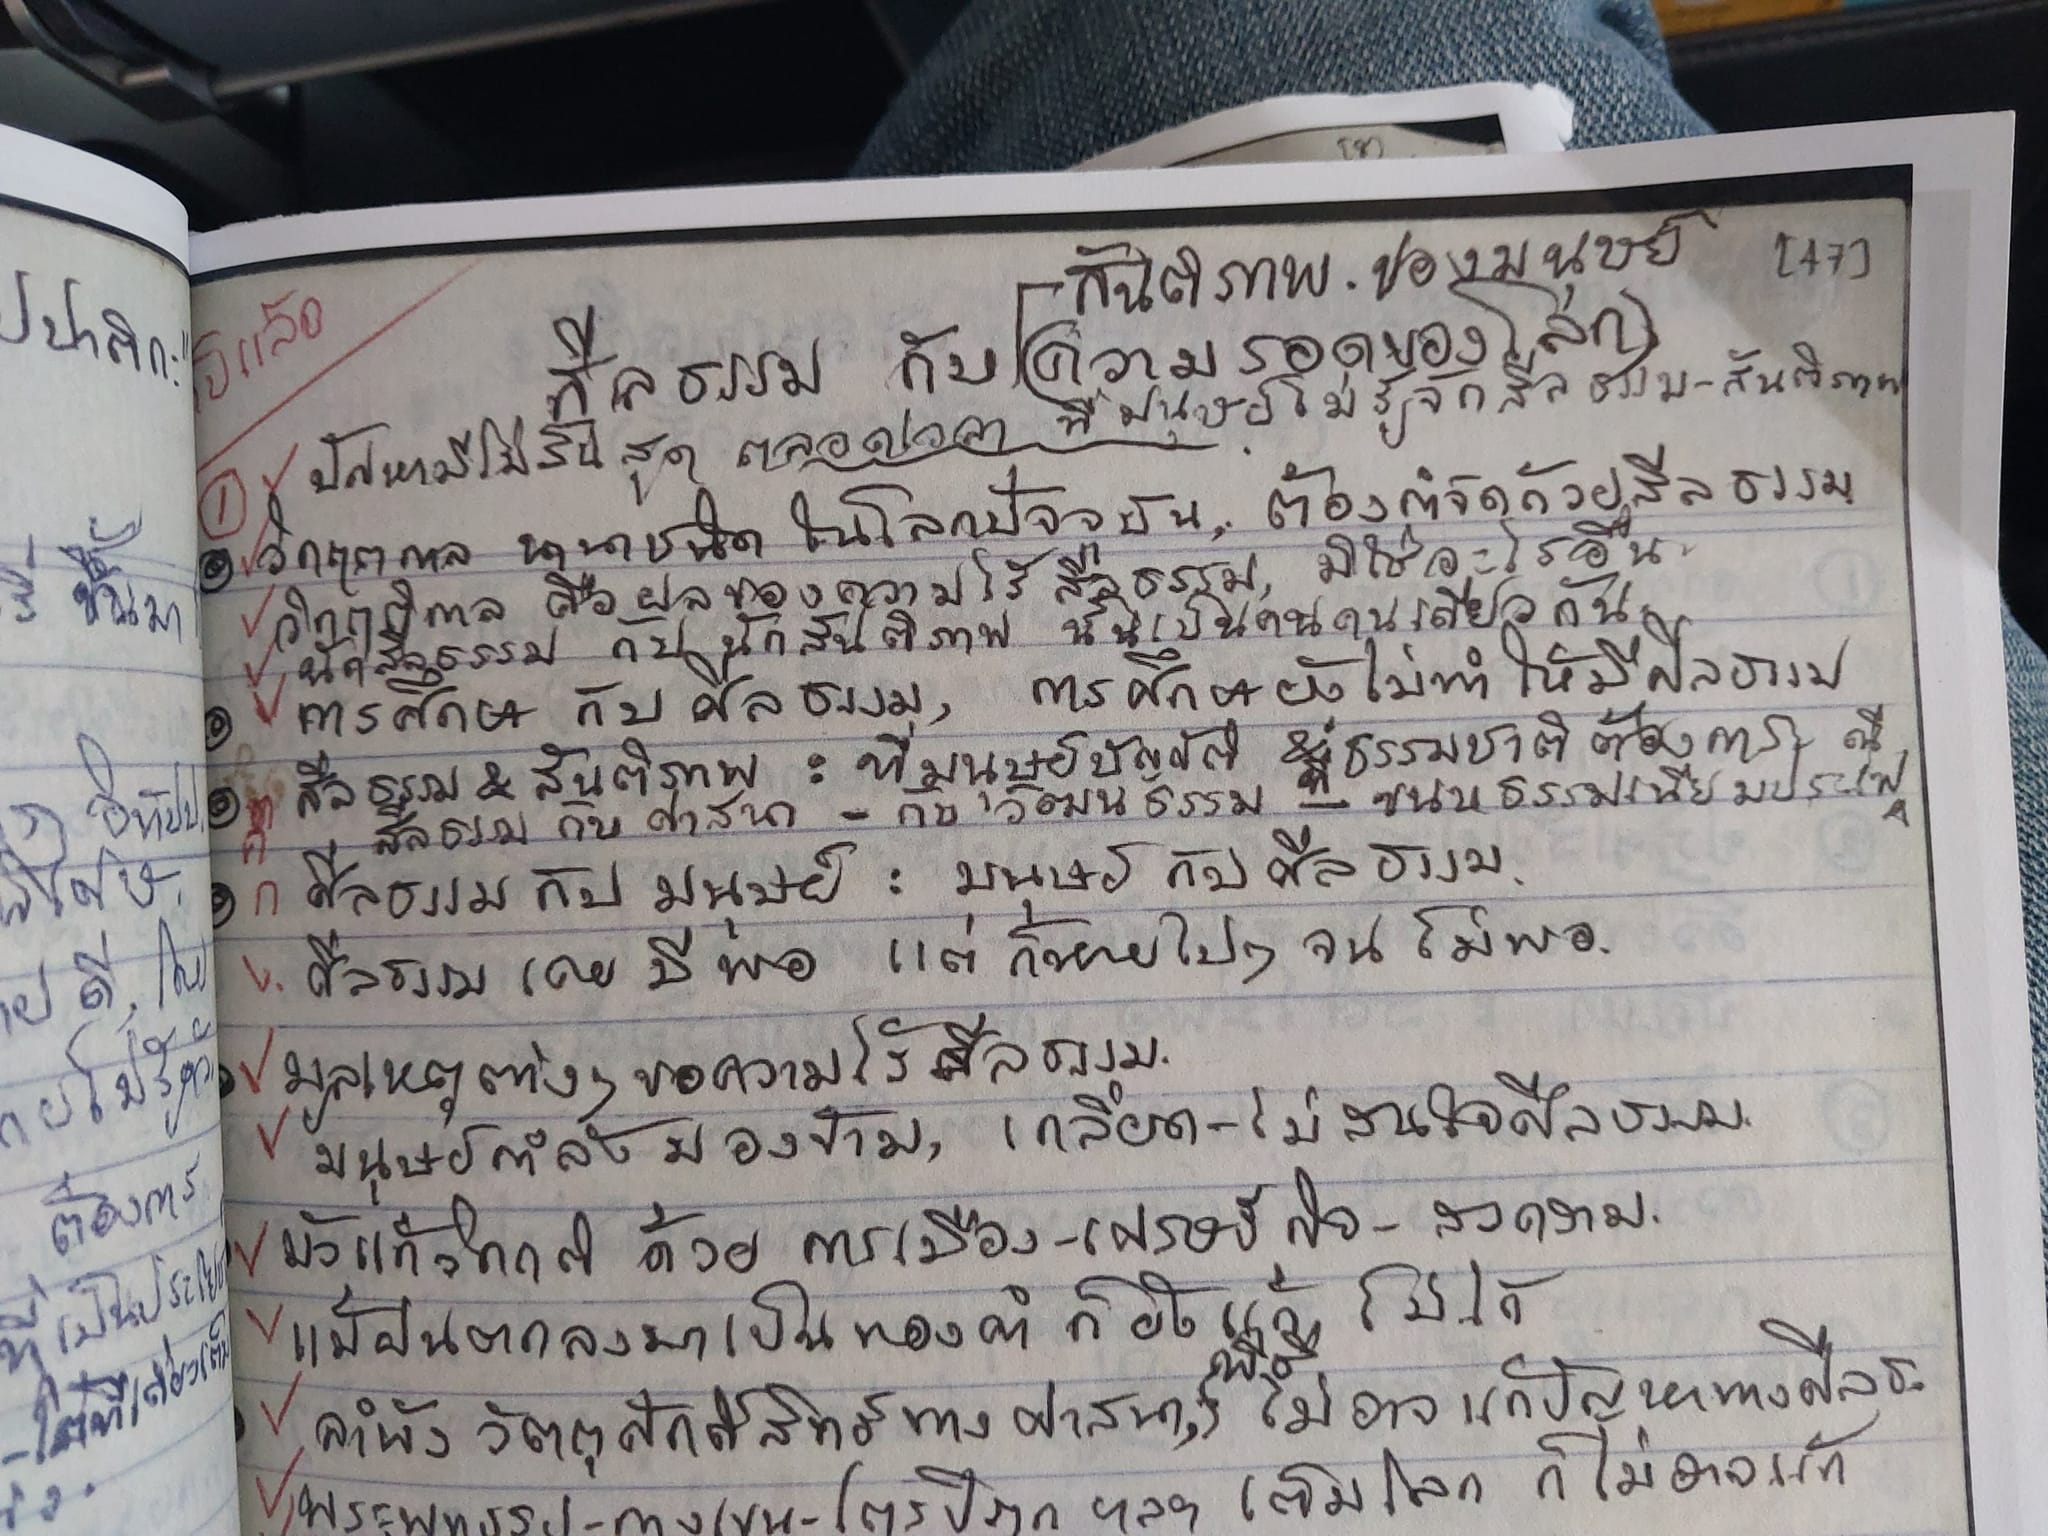 สันติภาพ.ของมนุษย์ [47]
ศีลธรรม กับ (ความรอดของโลก)
แล้ว
① ปัญหามีไม่สิ้นสุด ตลอดเวลา ที่มนุษย์ไม่รู้จักศีลธรรม-สันติภาพ
วิกฤตกาล นานาชนิด ในโลกปัจจุบัน, ต้องกำจัดด้วยศีลธรรม
วิกฤติกาล คือผลของความไร้ศีลธรรม, มิใช่อะไรอื่น.
นักศีลธรรม กับ นักสันติภาพ นั้นเป็นคนคนเดียวกัน.
การศึกษา กับ ศีลธรรม, การศึกษายังไม่ทำให้มีศีลธรรม
ศีลธรรม & สันติภาพ : ที่มนุษย์บัญญัติ & ที่ธรรมชาติต้องการ
ศีลธรรม กับ ศาสนา - กับ วัฒนธรรม – ขนบธรรมเนียมประเพณี
ก ศีลธรรมกับมนุษย์ : มนุษย์กับศีลธรรม.
ข. ศีลธรรม เคยมีพอ แต่ก็หายไปๆ จนไม่พอ.
มูลเหตุต่างๆ ของความไร้ศีลธรรม.
มนุษย์กำลังมองข้าม, เกลียด-ไม่สนใจศีลธรรม.
มัวแก้วิกฤติ ด้วย การเมือง-เศรษฐกิจ-สงคราม.
แม้ฝนตกลงมาเป็นทองคำ ก็ยังแก้ไม่ได้
ลำพัง วัตถุศักดิ์สิทธิ์ทางศาสนา, พิธี ไม่อาจแก้ปัญหาทางศีลธ.
พระพุทธรูป-กางเขน-ไตรปิฎก ฯลฯ เต็มโลก ก็ไม่อาจแก้
ขึ้นมา
ดี,
ต้องการ
ที่เป็นประโยชน์